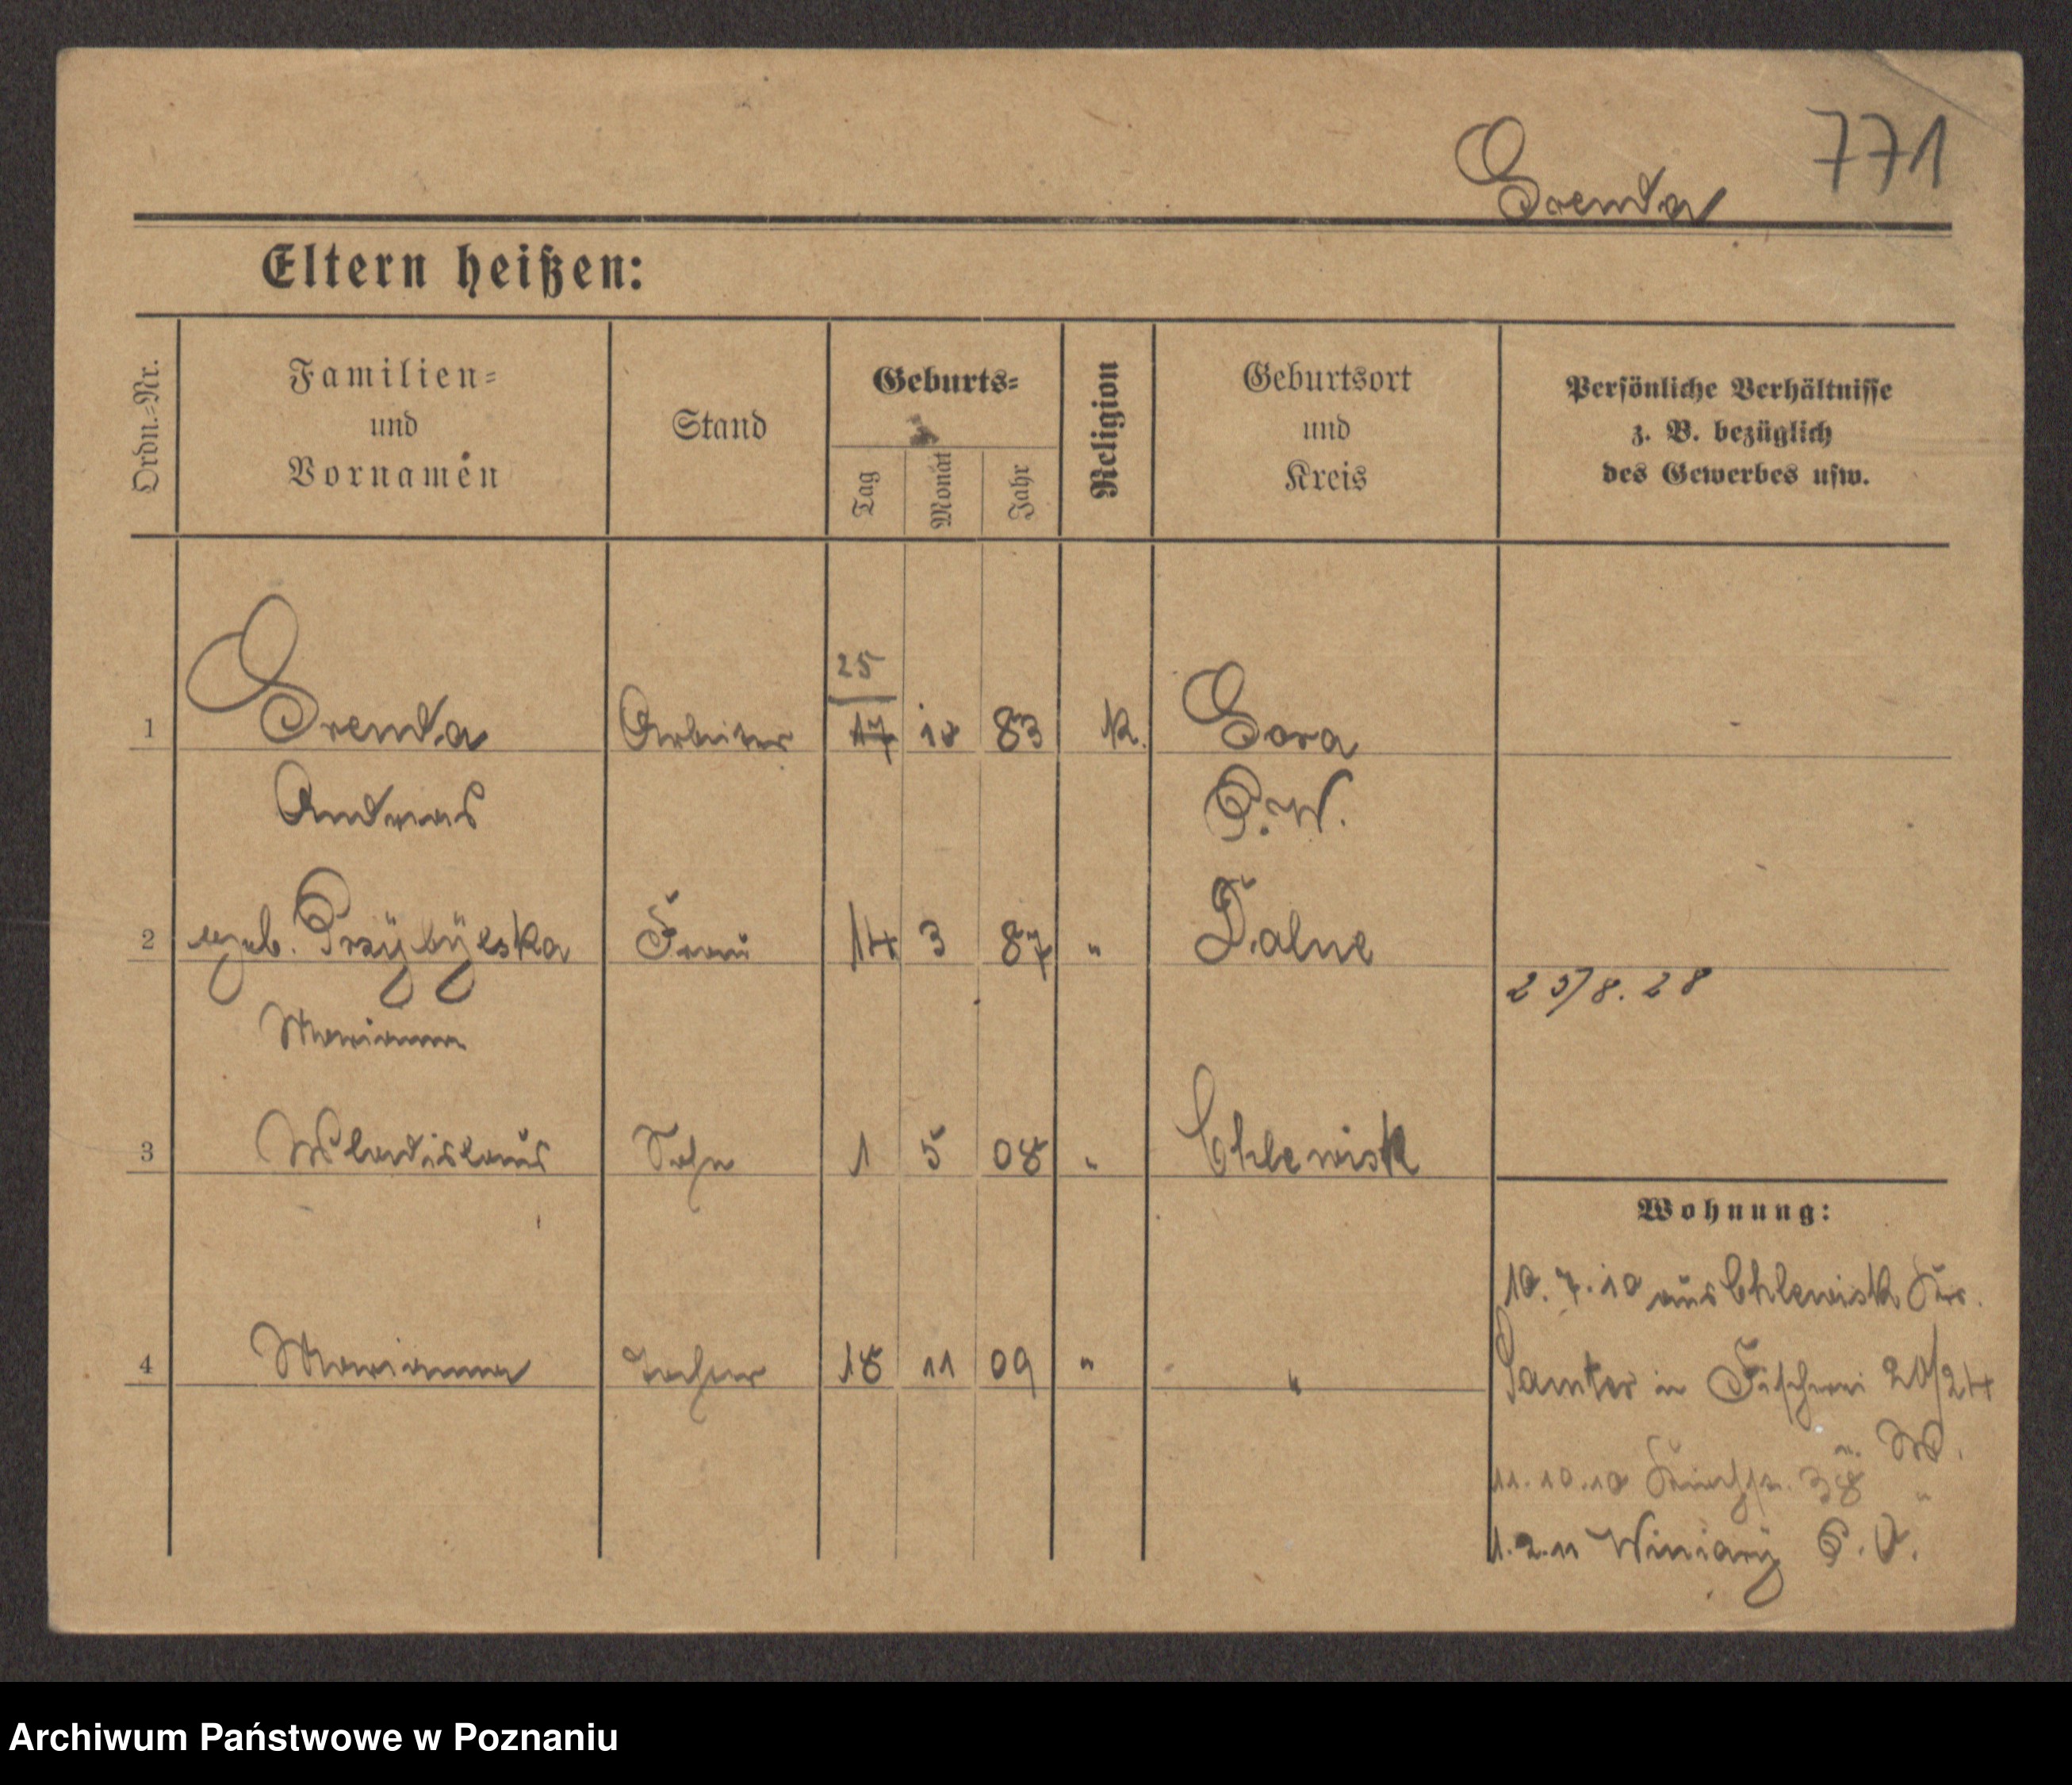 771
Grenda
Eltern heißen:
Ordn.-Nr.
Familien-
und
Vornamen
Stand
Geburts-
Tag
Monat
Jahr
Religion
Geburtsort
und
Kreis
Persönliche Verhältnisse
z. B. bezüglich
des Gewerbes usw.
25
1 Grenda Arbeiter 17 10 83 k. Gora
Andreas P. W.
2 geb. Przybylska Frau 14 3 87 " Dalne
25/8. 28
Marianna
3 Wladislaus Sohn 1 5 08 " Chlewisk
Wohnung:
10. 7. 10 aus Chlewisk Krs.
4 Marianna Tochter 18 11 09 " "
Samter in Fischerei 20/24
11. 10. 10 38 "
1. 2. 11 Winiary P. O.
Archiwum Państwowe w Poznaniu